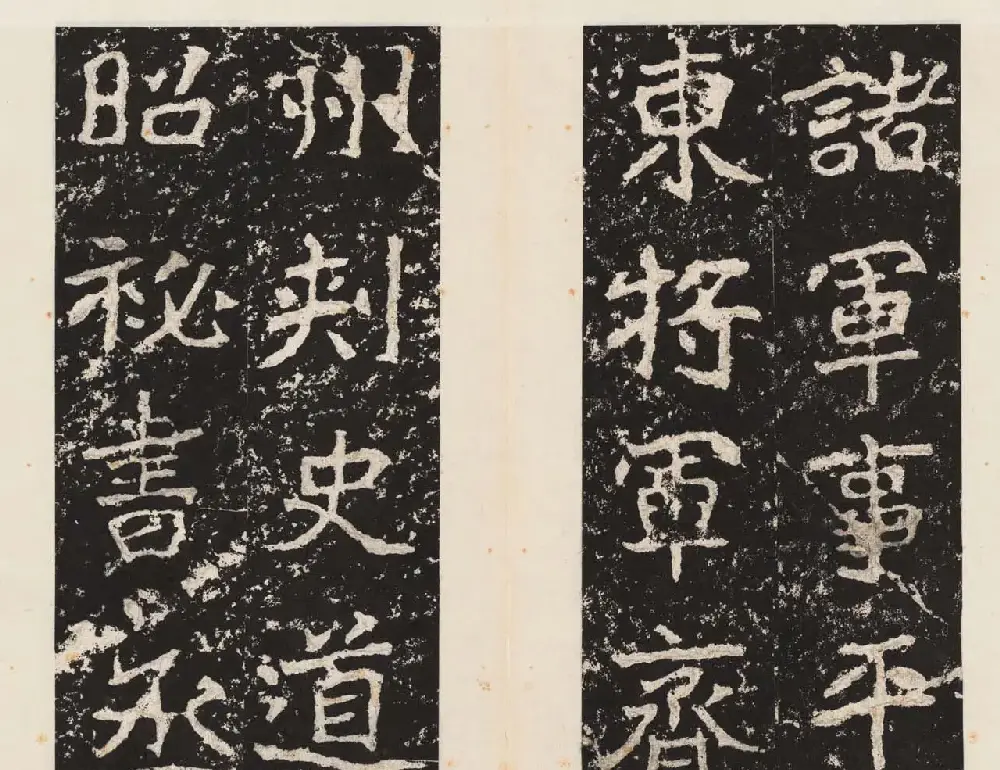 諸軍事平
東將軍齊
州刾史道
昭祕書丞